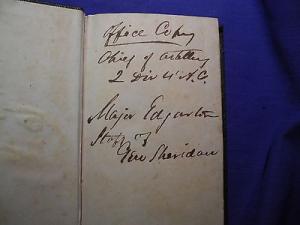 Office Copy
Chief of Artillery
2 Div 4 A.C.
Major Edgarton
Staff of
Gen Sheridan